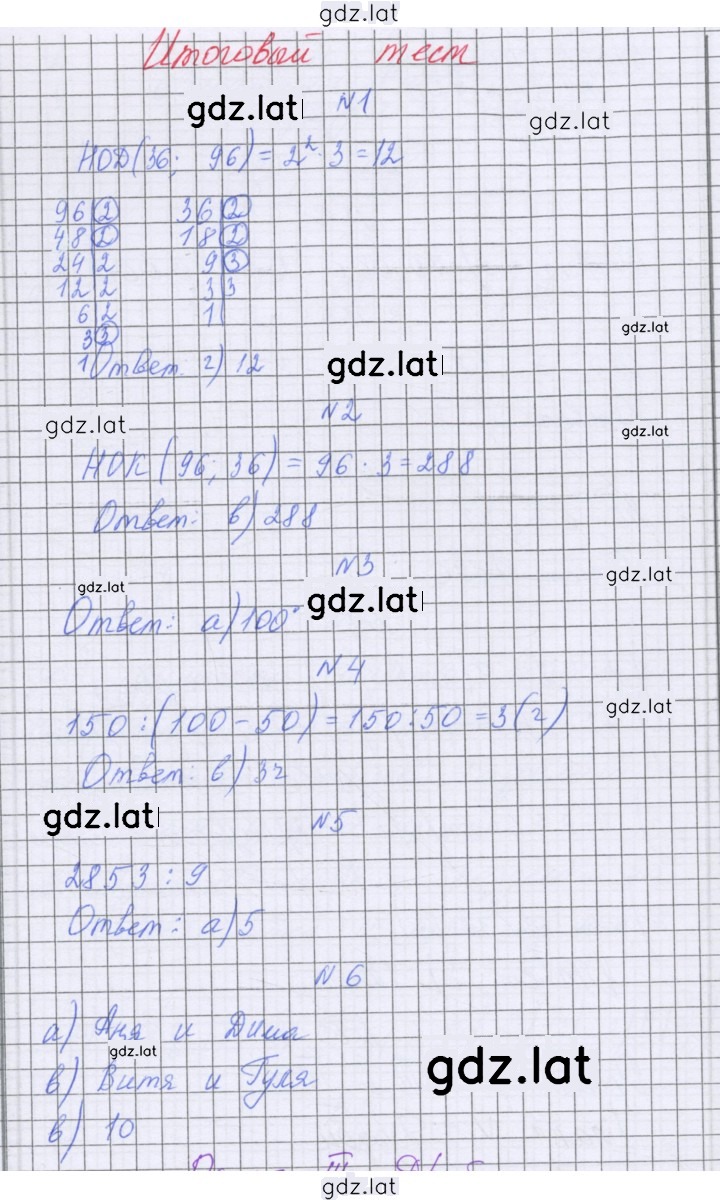 gdz.lat
Итоговый тест
gdz.lat
N1
gdz.lat
НОД(36; 96) = 2² · 3 = 12
96 2 36 2
48 2 18 2
24 2 9 3
12 2 3 3
6 2 1
3 3
gdz.lat
1
Ответ. г) 12
gdz.lat
N2
gdz.lat
gdz.lat
НОК (96; 36) = 96 · 3 = 288
Ответ: в) 288
N3
gdz.lat
gdz.lat
gdz.lat
Ответ: а) 100°
N4
150 : (100 - 50) = 150 : 50 = 3 (г)
gdz.lat
Ответ: в) 3г
gdz.lat
N5
2853 : 9
Ответ: а) 5
N6
а) Аня и Дима
gdz.lat
gdz.lat
в) Витя и Гуля
в) 10
gdz.lat